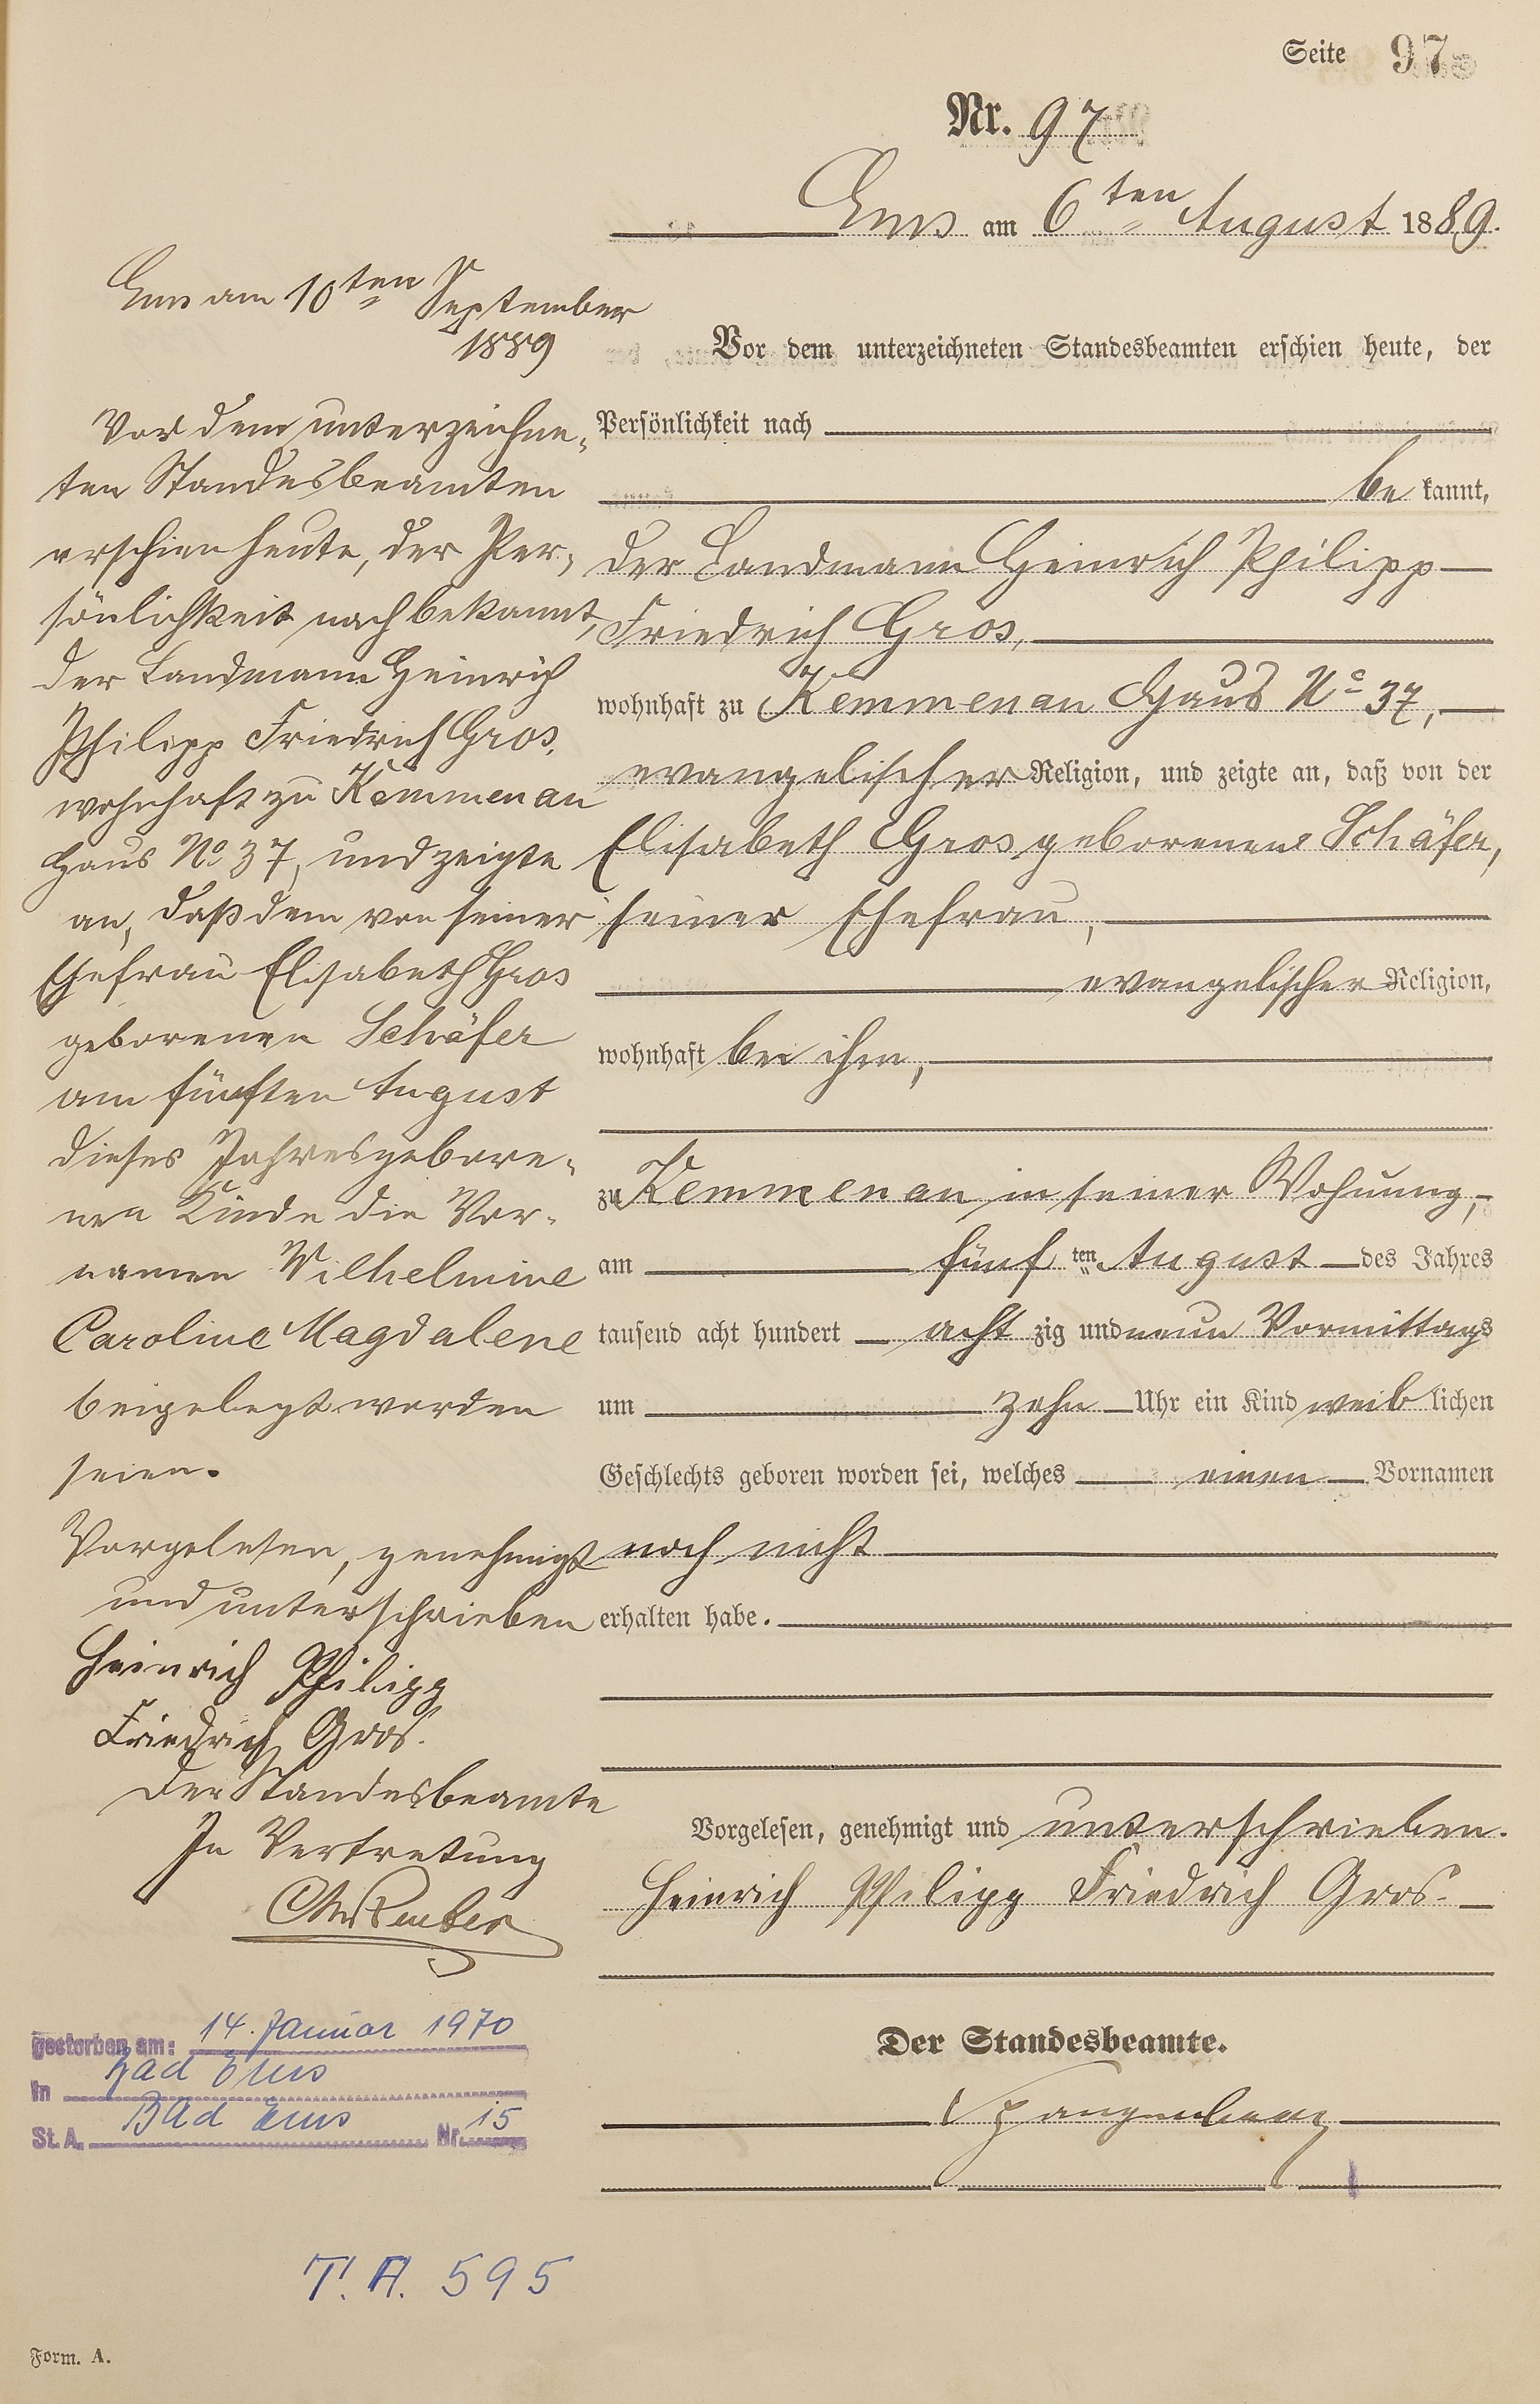 Seite 97
Nr. 97
Ems am 6ten August 1889.
Vor dem unterzeichneten Standesbeamten erschien heute, der
Persönlichkeit nach
bekannt,
der Landmann Heinrich Philipp
Friedrich Gros,
wohnhaft zu Kemmenau Haus No 37,
evangelischer Religion, und zeigte an, daß von der
Elisabeth Gros geborenen Schäfer,
seiner Ehefrau,
evangelischer Religion,
wohnhaft bei ihm,
zu Kemmenau in seiner Wohnung,
am fünften August des Jahres
tausend acht hundert achtzig und neun Vormittags
um zehn Uhr ein Kind weiblichen
Geschlechts geboren worden sei, welches einen Vornamen
noch nicht
erhalten habe.
Vorgelesen, genehmigt und unterschrieben.
Heinrich Philipp Friedrich Gros.
Der Standesbeamte.
Ems am 10ten September
1889
Vor dem unterzeichne-
ten Standesbeamten
erschien heute, der Per-
sönlichkeit nach bekannt,
der Landmann Heinrich
Philipp Friedrich Gros,
wohnhaft zu Kemmenau
Haus No 37, und zeigte
an, daß dem von seiner
Ehefrau Elisabeth Gros
geborenen Schäfer
am fünften August
dieses Jahres gebore-
nen Kinde die Vor-
namen Wilhelmine
Caroline Magdalene
beigelegt worden
seien.
Vorgelesen, genehmigt
und unterschrieben
Heinrich Philipp
Friedrich Gros.
Der Standesbeamte
In Vertretung
gestorben am: 14. Januar 1970
in Bad Ems
St. A. Bad Ems Nr. 15
T. A. 595
Form. A.